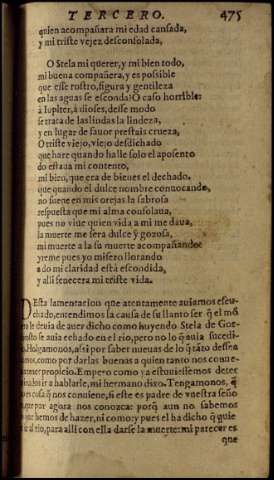 TERCERO. 475
quien acompañara mi edad cansada,
y mi triste vejez desconsolada,
O Stela mi querer, y mi bien todo,
mi buena compañera, y es possible
que esse rostro, figura y gentileza
en las aguas se esconda? O caso horrible:
à Iupiter, à dioses, desse modo
se trata de las lindas la lindeza,
y en lugar de fauor prestais crueza,
O triste viejo, viejo desdichado
que hare quando halle solo el aposento
do estaua mi contento,
mi bien, que era de bienes el dechado,
que quando el dulce nombre conuocando,
no suene en mis orejas la sabrosa
respuesta que mi alma consolaua,
pues no viue quien vida a mi me daua,
la muerte me sera dulce y gozosa,
mi muerte a la su muerte acompañando
yreme pues yo misero llorando
a do mi claridad està escondida,
y alli fenecera mi triste vida.
DEsta lamentacion que atentamente auiamos escu-
chado, entendimos la causa de su llanto ser q̃ el mõ
le deuia de auer dicho como huyendo Stela de Gor-
se auia echado en el rio, pero no lo q̃ auia sucedi-
Holgamonos, assi por saber nueuas de lo q̃ tãto dessea
mos, como por darlas buenas a quien tanto nos conue-
tener propicio. Empero como ya estuuiessemos deter
a ir a hablarle, mi hermano dixo. Tengamonos, q̃
cosa q̃ nos conuiene, si este es padre de vuestra seño
que por agora nos conozca: porq̃ aun no sabemos
que hemos de hazer, ni como: y pues el ha dicho q̃ quie
ir al rio, para alli con ella darse la muerte: mi parecer es
que